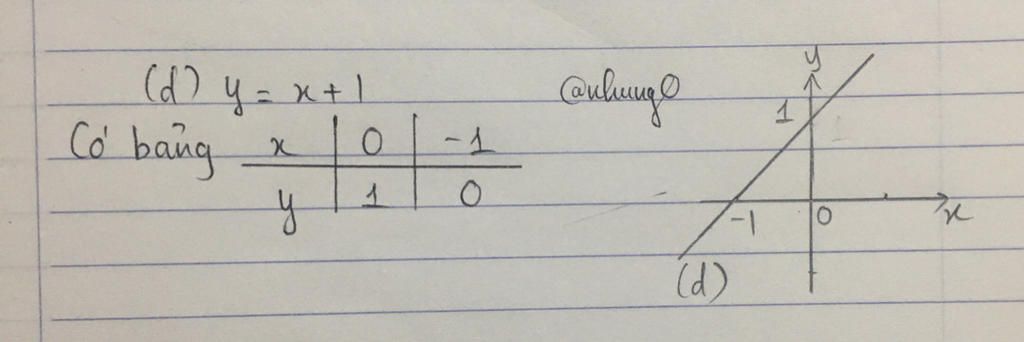 (d) y = x + 1
@nhung0
Có bảng
x | 0 | -1
y | 1 | 0
y
1
-1 0 x
(d)